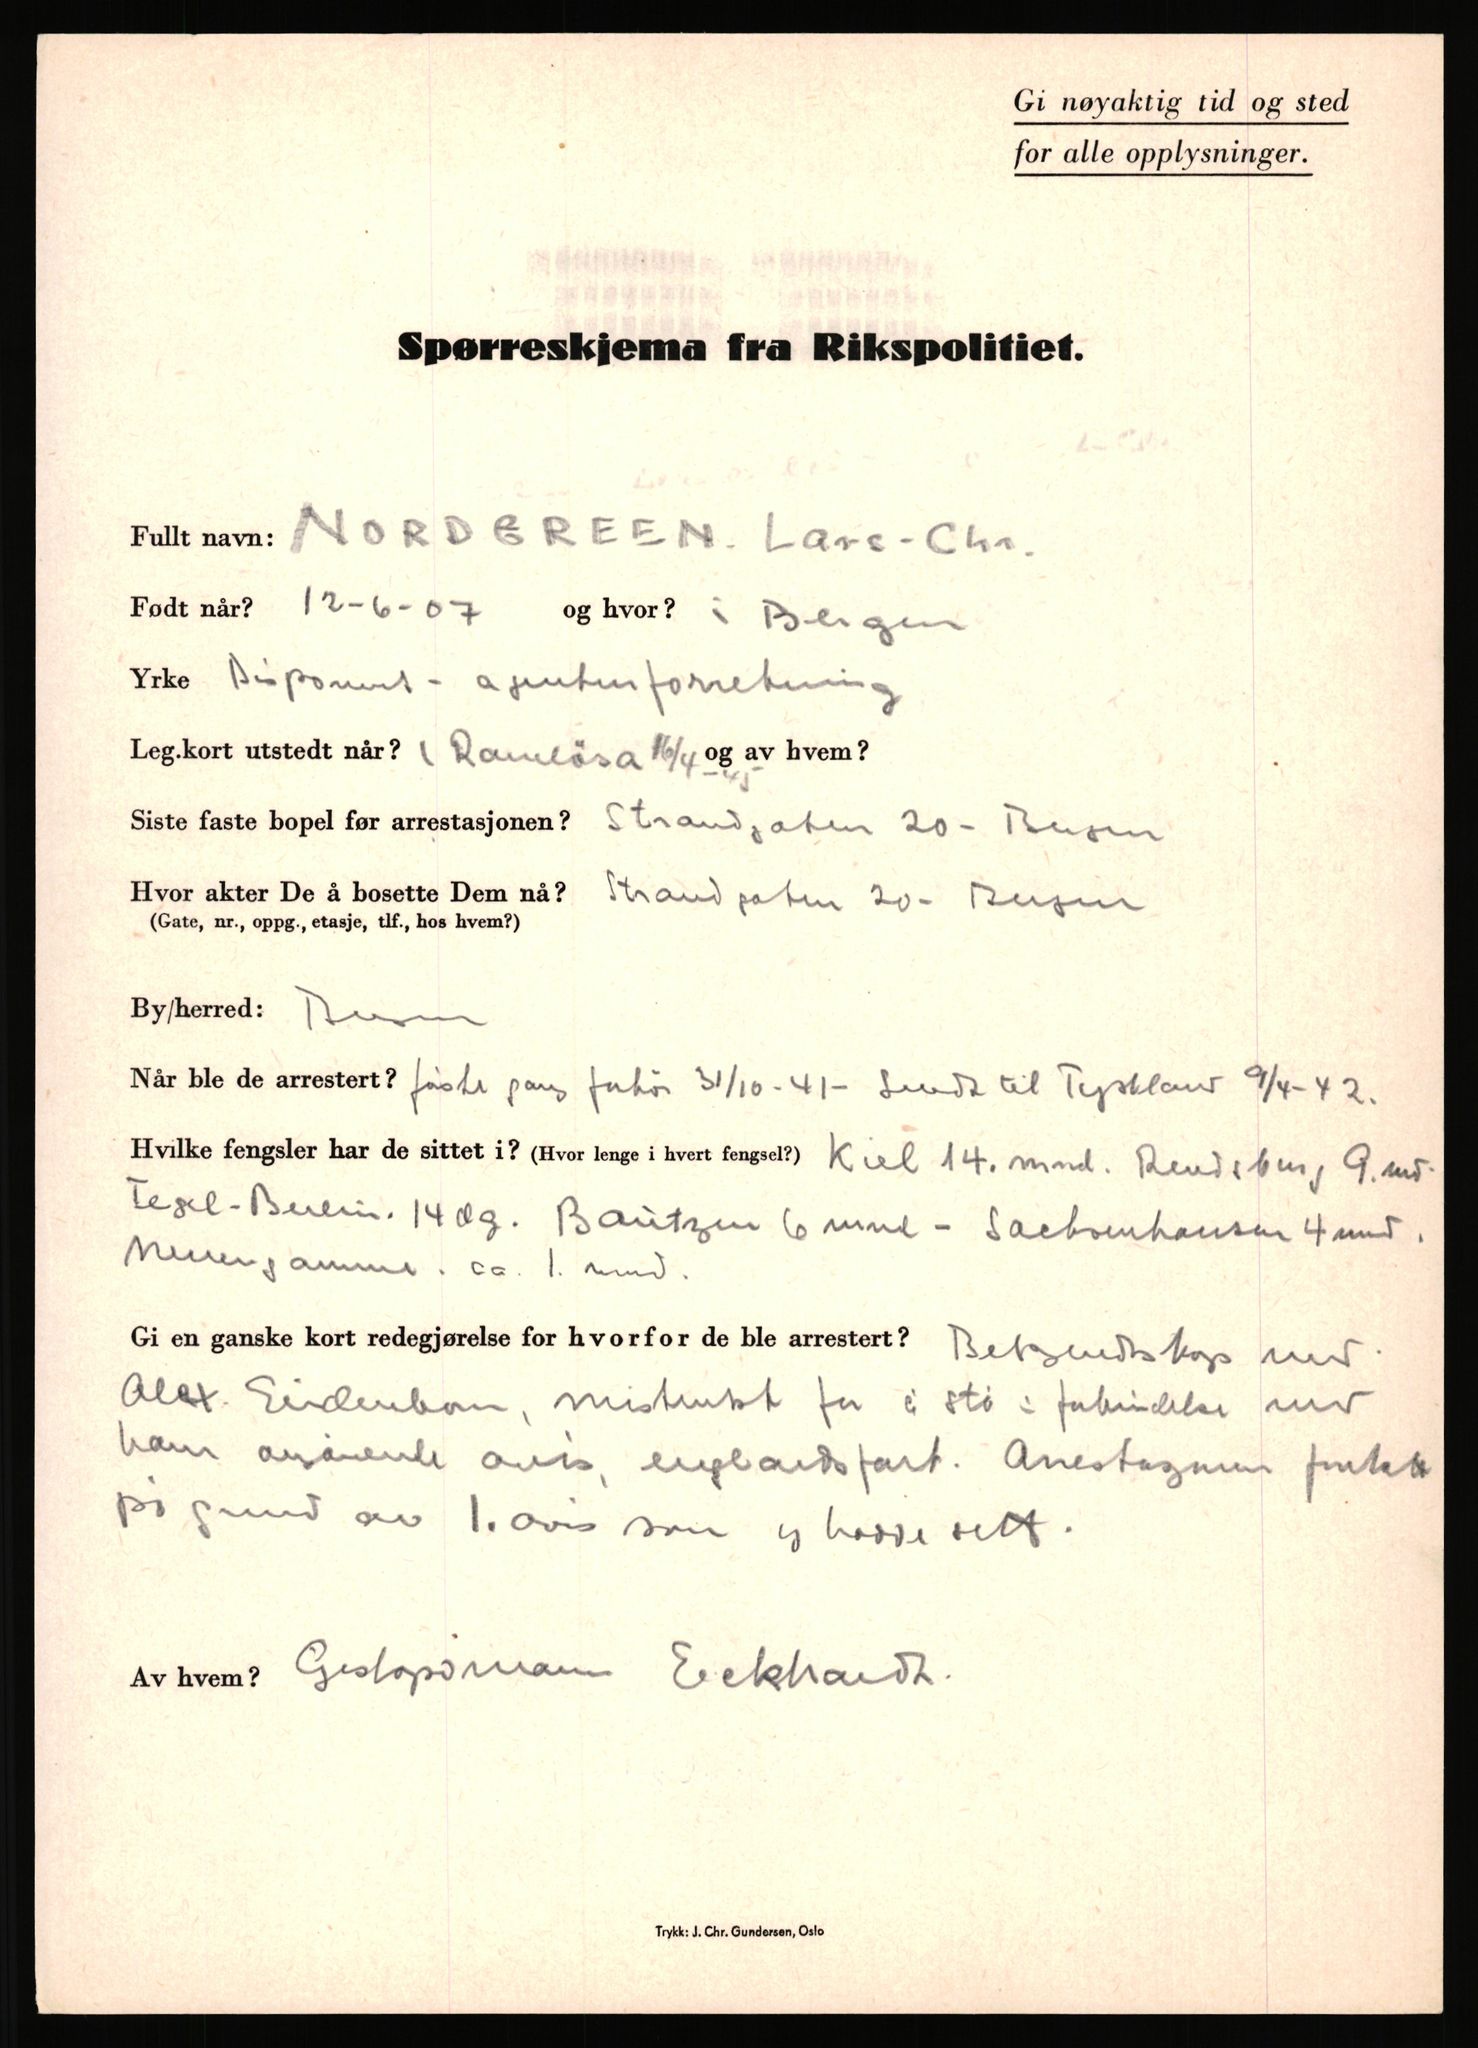 Gi nøyaktig tid og sted
for alle opplysninger.
Spørreskjema fra Rikspolitiet.
Fullt navn: NORDGREEN. Lars-Chr.
Født når? 12-6-07 og hvor? i Bergen
Yrke Disponent - agenturforretning
Leg.kort utstedt når? i Ramlösa 16/4-45 og av hvem?
Siste faste bopel før arrestasjonen? Strandgaten 20 - Bergen
Hvor akter De å bosette Dem nå? Strandgaten 20 - Bergen
(Gate, nr., oppg., etasje, tlf., hos hvem?)
By/herred: Bergen
Når ble de arrestert? første gang forhör 31/10-41 - Sendt til Tyskland 9/4-42.
Hvilke fengsler har de sittet i? (Hvor lenge i hvert fengsel?) Kiel 14. mnd. Rendsburg 9. md.
Tegel-Berlin. 14 dg. Bautzen 6 mnd - Sachsenhausen 4 mnd.
Neuengamme. ca. 1. mnd.
Gi en ganske kort redegjørelse for hvorfor de ble arrestert? Bekjendtskap med
Alex. mistenkt for å stå i forbindelse med
ham angående avis, englandsfart. Arrestasjonen
på grund av 1. avis som jeg hadde sett.
Av hvem? Gestapomann Eckhardt.
Trykk: J. Chr. Gundersen, Oslo